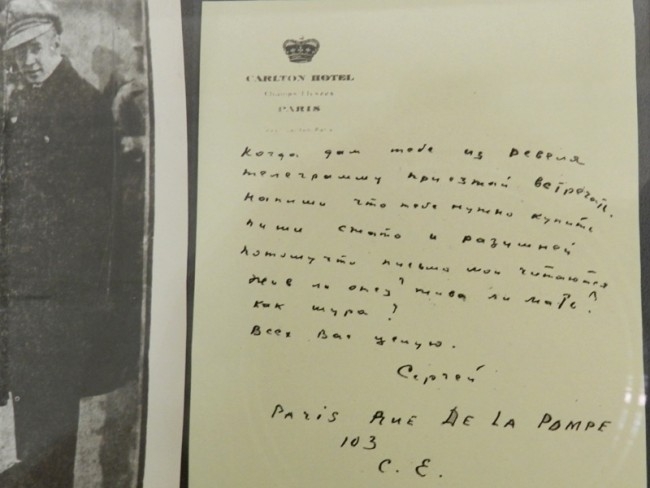 CARLTON HOTEL
PARIS
Когда дам тебе из ревеля
телеграмму приезжай встречать.
Напиши что тебе нужно купить
Пиши сжато и разумней
Потому что письма мои читаются
Жив ли отец? жива ли мать?
Как шура?
Всех Вас целую.
Сергей
PARIS RUE DE LA POMPE
103
С. Е.